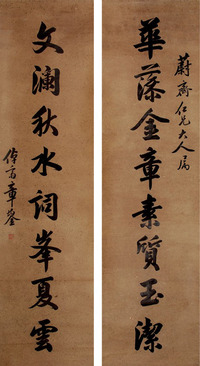 蔚齋仁兄大人屬
華藻金章素質玉潔
文瀾秋水詞峯夏雲